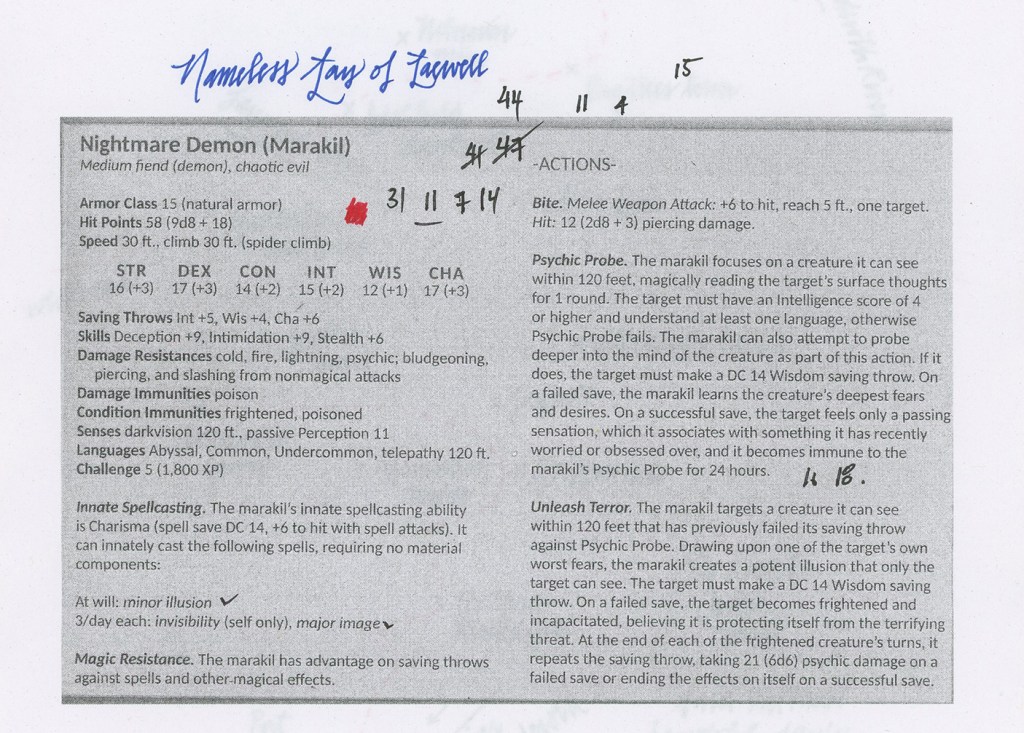 Nameless Fay of Fagwell
15
44 11 4
Nightmare Demon (Marakil)
Medium fiend (demon), chaotic evil
41 47
Armor Class 15 (natural armor)
31 11 7 14
Hit Points 58 (9d8 + 18)
Speed 30 ft., climb 30 ft. (spider climb)
STR DEX CON INT WIS CHA
16 (+3) 17 (+3) 14 (+2) 15 (+2) 12 (+1) 17 (+3)
Saving Throws Int +5, Wis +4, Cha +6
Skills Deception +9, Intimidation +9, Stealth +6
Damage Resistances cold, fire, lightning, psychic; bludgeoning,
piercing, and slashing from nonmagical attacks
Damage Immunities poison
Condition Immunities frightened, poisoned
Senses darkvision 120 ft., passive Perception 11
Languages Abyssal, Common, Undercommon, telepathy 120 ft.
Challenge 5 (1,800 XP)
Innate Spellcasting. The marakil's innate spellcasting ability
is Charisma (spell save DC 14, +6 to hit with spell attacks). It
can innately cast the following spells, requiring no material
components:
At will: minor illusion ✓
3/day each: invisibility (self only), major image ✓
Magic Resistance. The marakil has advantage on saving throws
against spells and other magical effects.
-ACTIONS-
Bite. Melee Weapon Attack: +6 to hit, reach 5 ft., one target.
Hit: 12 (2d8 + 3) piercing damage.
Psychic Probe. The marakil focuses on a creature it can see
within 120 feet, magically reading the target's surface thoughts
for 1 round. The target must have an Intelligence score of 4
or higher and understand at least one language, otherwise
Psychic Probe fails. The marakil can also attempt to probe
deeper into the mind of the creature as part of this action. If it
does, the target must make a DC 14 Wisdom saving throw. On
a failed save, the marakil learns the creature's deepest fears
and desires. On a successful save, the target feels only a passing
sensation, which it associates with something it has recently
worried or obsessed over, and it becomes immune to the
marakil's Psychic Probe for 24 hours.
18.
Unleash Terror. The marakil targets a creature it can see
within 120 feet that has previously failed its saving throw
against Psychic Probe. Drawing upon one of the target's own
worst fears, the marakil creates a potent illusion that only the
target can see. The target must make a DC 14 Wisdom saving
throw. On a failed save, the target becomes frightened and
incapacitated, believing it is protecting itself from the terrifying
threat. At the end of each of the frightened creature's turns, it
repeats the saving throw, taking 21 (6d6) psychic damage on a
failed save or ending the effects on itself on a successful save.